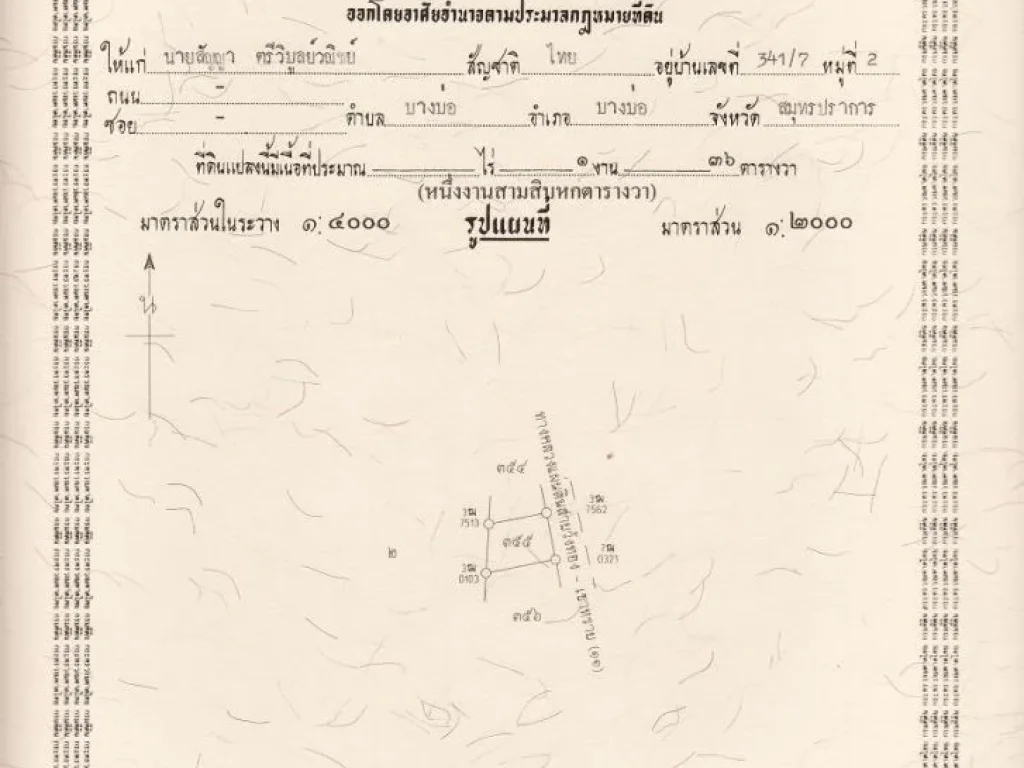 ออกโดยอาศัยอำนาจตามประมวลกฎหมายที่ดิน
ให้แก่ นายสัญญา ตรีวิบูลย์วณิชย์ สัญชาติ ไทย อยู่บ้านเลขที่ 341/7 หมู่ที่ 2
ถนน -
ซอย - ตำบล บางบ่อ อำเภอ บางบ่อ จังหวัด สมุทรปราการ
ที่ดินแปลงนี้มีเนื้อที่ประมาณ ไร่ ๑ งาน ๓๖ ตารางวา
(หนึ่งงานสามสิบหกตารางวา)
มาตราส่วนในระวาง ๑: ๔๐๐๐ รูปแผนที่ มาตราส่วน ๑: ๒๐๐๐
น
ทางหลวงแผ่นดินสายวังทอง - เขาทราย (๑๑)
๓๕๔
3ฒ 7513
3ฒ 7562
๓๕๕
๒
7ฒ 0321
3ฒ 0103
๓๕๖